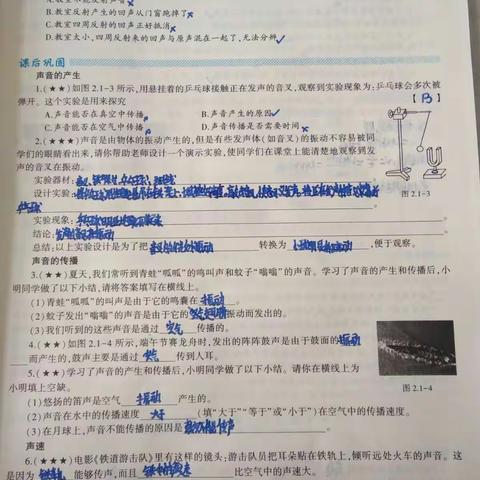 B.教室反射产生的回声从门窗跑掉了
C.教室四周反射的回声正好抵消
D.教室太小,四周反射来的回声与原声混在一起了,无法分辨
课后巩固
声音的产生
1.(★★)如图2.1-3所示,用悬挂着的乒乓球接触正在发声的音叉,观察到实验现象为:乒乓球会多次被
弹开。这个实验是用来探究 【B】
A.声音能否在真空中传播 B.声音产生的原因
C.声音能否在空气中传播 D.声音传播是否需要时间
2.(★★)声音是由物体的振动产生的,但是有些发声体(如音叉)的振动不容易被同
学们的眼睛看出来,请你帮助老师设计一个演示实验,使同学们在课堂上能清楚地观察到发
声的音叉在振动。
图2.1-3
实验器材:
设计实验:
实验现象:
结论:
总结:以上实验设计是为了把 转换为 ,便于观察。
声音的传播
3.(★★)夏天,我们常听到青蛙“呱呱”的鸣叫声和蚊子“嗡嗡”的声音。学习了声音的产生和传播后,小
明同学做了以下小结,请将答案填写在横线上。
(1)青蛙“呱呱”的叫声是由于它的鸣囊在振动。
(2)蚊子发出“嗡嗡”的声音是由于它的翅膀振动而发出的。
(3)我们听到的这些声音是通过空气传播的。
4.(★★)如图2.1-4所示,端午节赛龙舟时,发出的阵阵鼓声是由于鼓面的振动
而产生的,鼓声主要是通过空气传到人耳。
图2.1-4
5.(★★)学习了声音的产生和传播后,小明同学做了以下小结。请你在横线上为
小明填上空缺。
(1)悠扬的笛声是空气振动产生的。
(2)声音在水中的传播速度大于(填“大于”“等于”或“小于”)在空气中的传播速度。
(3)在月球上,声音不能传播的原因是真空不能传声
声速
6.(★★)电影《铁道游击队》里有这样的镜头:游击队员把耳朵贴在铁轨上,倾听远处火车的声音。这
是因为 能够传声,而且 比空气中的声速大。